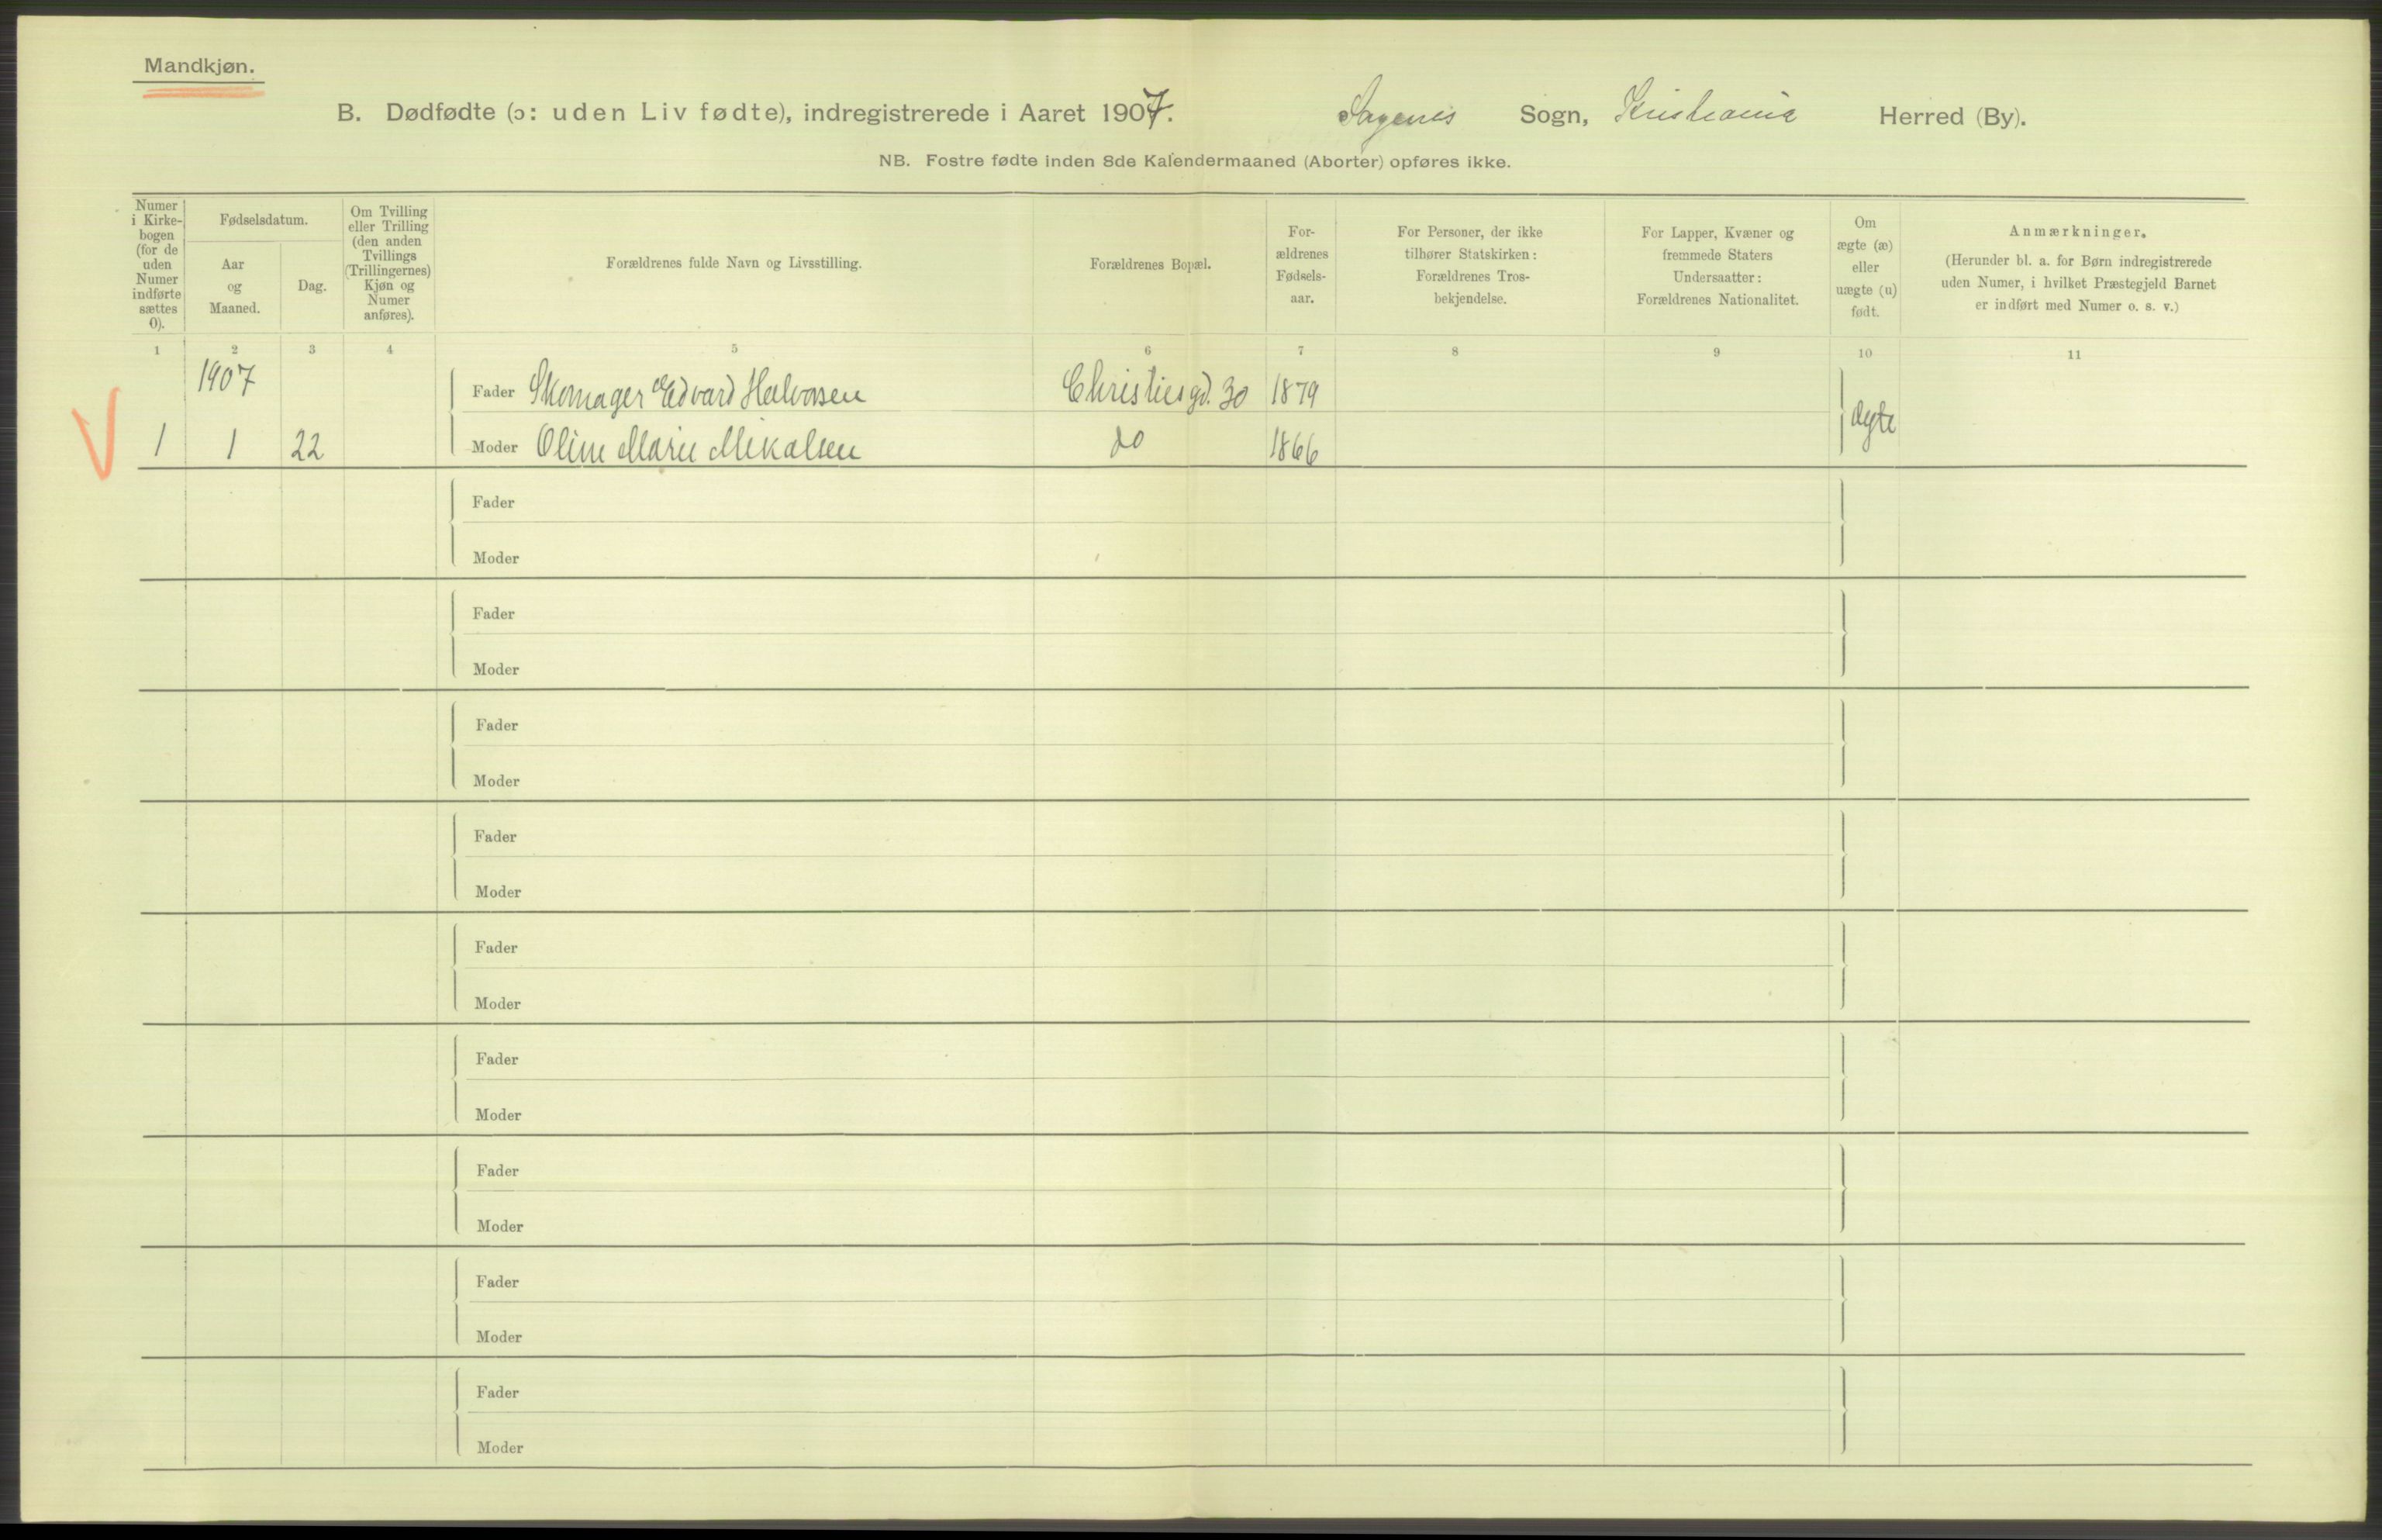 Mandkjøn.
B. Dødfødte (ɔ: uden Liv fødte), indregistrerede i Aaret 1907. Sagenes Sogn, Kristiania Herred (By).
NB. Fostre fødte inden 8de Kalendermaaned (Aborter) opføres ikke.
Numer
i Kirke-
bogen
(for de
uden
Numer
indførte
sættes
0).
Fødselsdatum.
Aar
og
Maaned.
Dag.
Om Tvilling
eller Trilling
(den anden
Tvillings
(Trillingernes)
Kjøn og
Numer
anføres).
Forældrenes fulde Navn og Livsstilling.
Forældrenes Bopæl.
For-
ældrenes
Fødsels-
aar.
For Personer, der ikke
tilhører Statskirken:
Forældrenes Tros-
bekjendelse.
For Lapper, Kvæner og
fremmede Staters
Undersaatter:
Forældrenes Nationalitet.
Om
ægte (æ)
eller
uægte (u)
født.
Anmærkninger.
(Herunder bl. a. for Børn indregistrerede
uden Numer, i hvilket Præstegjeld Barnet
er indført med Numer o. s. v.)
1 2 3 4 5 6 7 8 9 10 11
1907 Fader Skomager Edvard Halvorsen Christiesgd. 30 1879
ægte
1 1 22 Moder Oline Marie Mikalsen do 1866
Fader
Moder
Fader
Moder
Fader
Moder
Fader
Moder
Fader
Moder
Fader
Moder
Fader
Moder
Fader
Moder
Fader
Moder